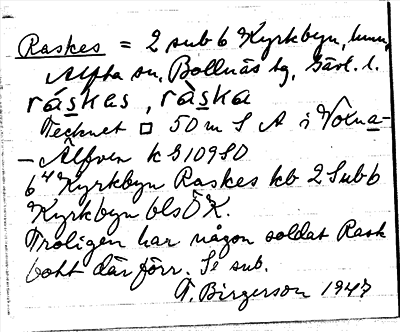 Raskes = 2 sub 6 Kyrkbyn, hmn,
Alfta sn, Bollnäs tg, Gävl. l.
ráskas, ràska
Tecknet □ 50 m S A i Voxna-
- Älfven k G109SO
6⁴ Kyrkbyn Raskes kb 2 Sub 6
Kyrkbyn bls ÖK.
Troligen har någon soldat Rask
bott där förr. Se sub.
Birgerson 1947